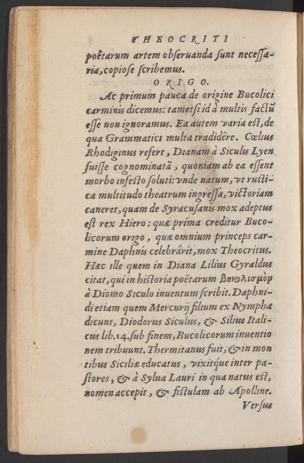 THEOCRITI
poëtarum artem obseruanda sunt necessa-
ria, copiose scribemus.
ORIGO.
Ac primum pauca de origine Bucolici
carminis dicemus: tametsi id à multis factū
esse non ignoramus. Ea autem varia est, de
qua Grammatici multa tradidêre. Cœlius
Rhodiginus refert, Dianam à Siculis Lyen
fuisse cognominatā, quoniam ab ea essent
morbo infecto soluti: vnde natum, vt rusti-
ca multitudo theatrum ingressa, victoriam
caneret, quam de Syracusanis mox adeptus
est rex Hiero: quæ prima creditur Buco-
licorum origo, quæ omnium princeps car-
mine Daphnis celebrârit, mox Theocritus.
Hæc ille quem in Diana Lilius Gyraldus
citat, qui in historia poëtarum βουκολιασμὸν
à Diomo Siculo inuentum scribit. Daphni-
di etiam quem Mercurij filium ex Nympha
dicunt, Diodorus Siculus, & Silius Itali-
cus lib. 14. sub finem, Bucolicorum inuentio
nem tribuunt. Thermitanus fuit, & in mon
tibus Siciliæ educatus, vixitque inter pa-
stores, & à Sylua Lauri in qua natus est,
nomen accepit, & fistulam ab Apolline.
Versus